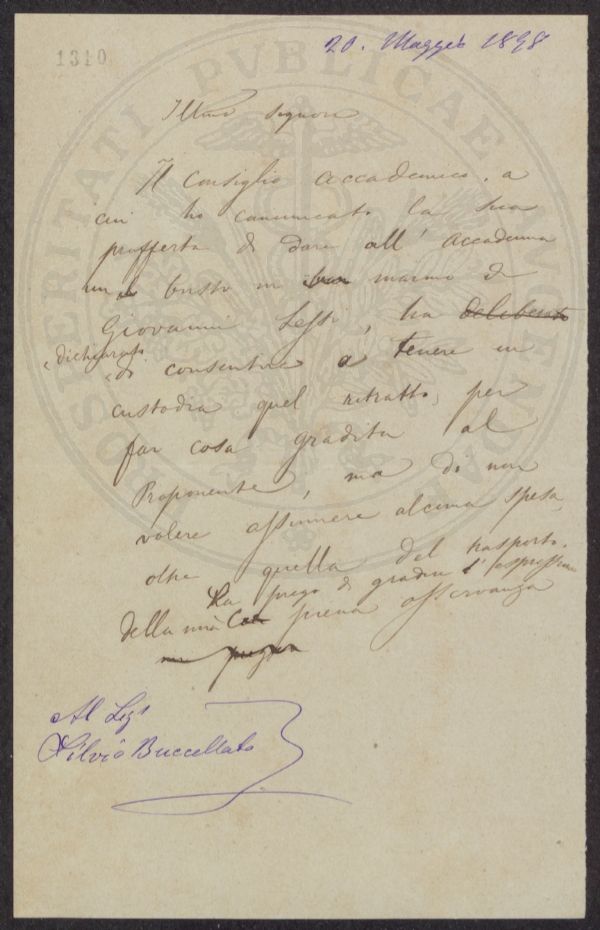 1310
20. Maggio 1898
Illmo Signore
Il Consiglio Accademico, a
cui ho comunicato la sua
profferta di dare all' Accademia
un busto in marmo di
Giovanni Lessi, ha deliberato
"dichiarato
"di consentire a tenere in
custodia quel ritratto, per
far cosa gradita al
Proponente, ma di non
volere assumere alcuna spesa,
oltre quella del trasporto.
La prego di gradire l'espressione
della mia piena osservanza
Al Sigr
Silvio Buccellato
PROSPERITATI PVBLICAE